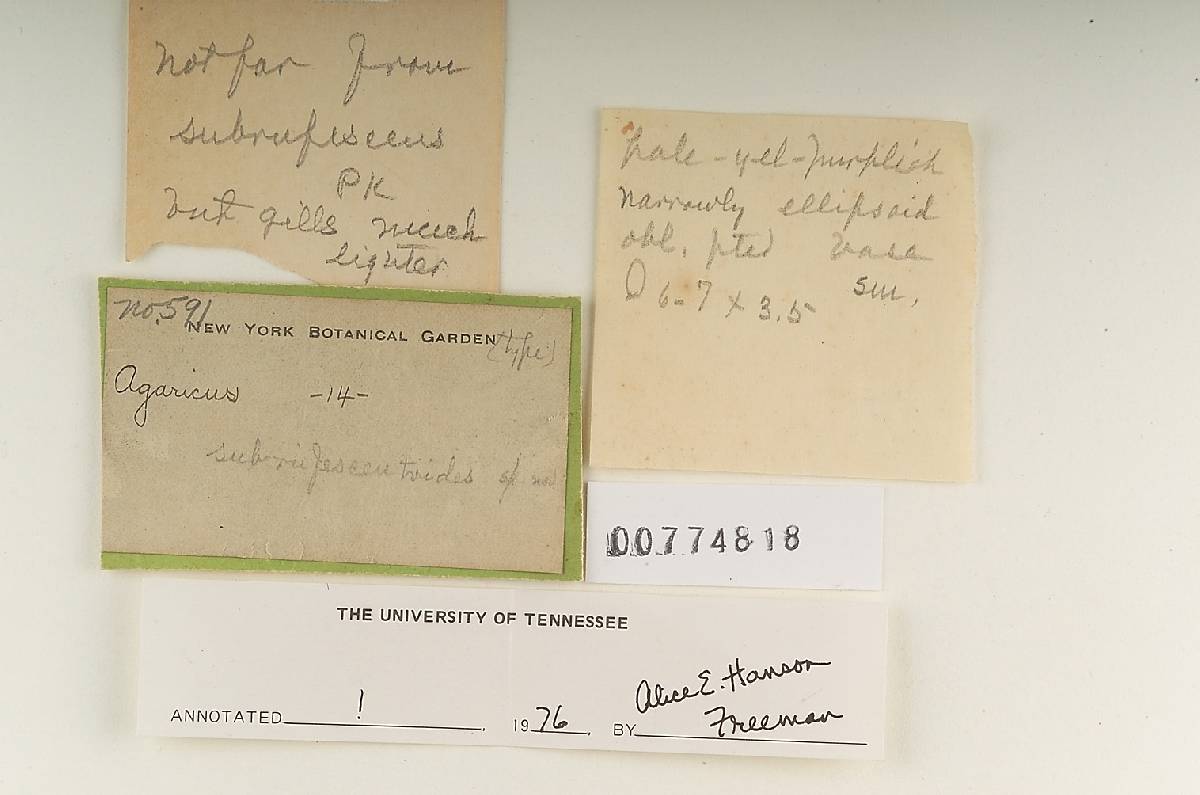 Not far from
subrufescens
PK
but gills much
lighter
pale-yel-purplish
narrowly ellipsoid
obl. pted base
6-7 x 3.5 sm.
No. 591
NEW YORK BOTANICAL GARDEN (type)
Agaricus -14-
subrufescentoides sp nov
00774818
THE UNIVERSITY OF TENNESSEE
ANNOTATED ! . 1976. BY Alice E. Hanson
Freeman